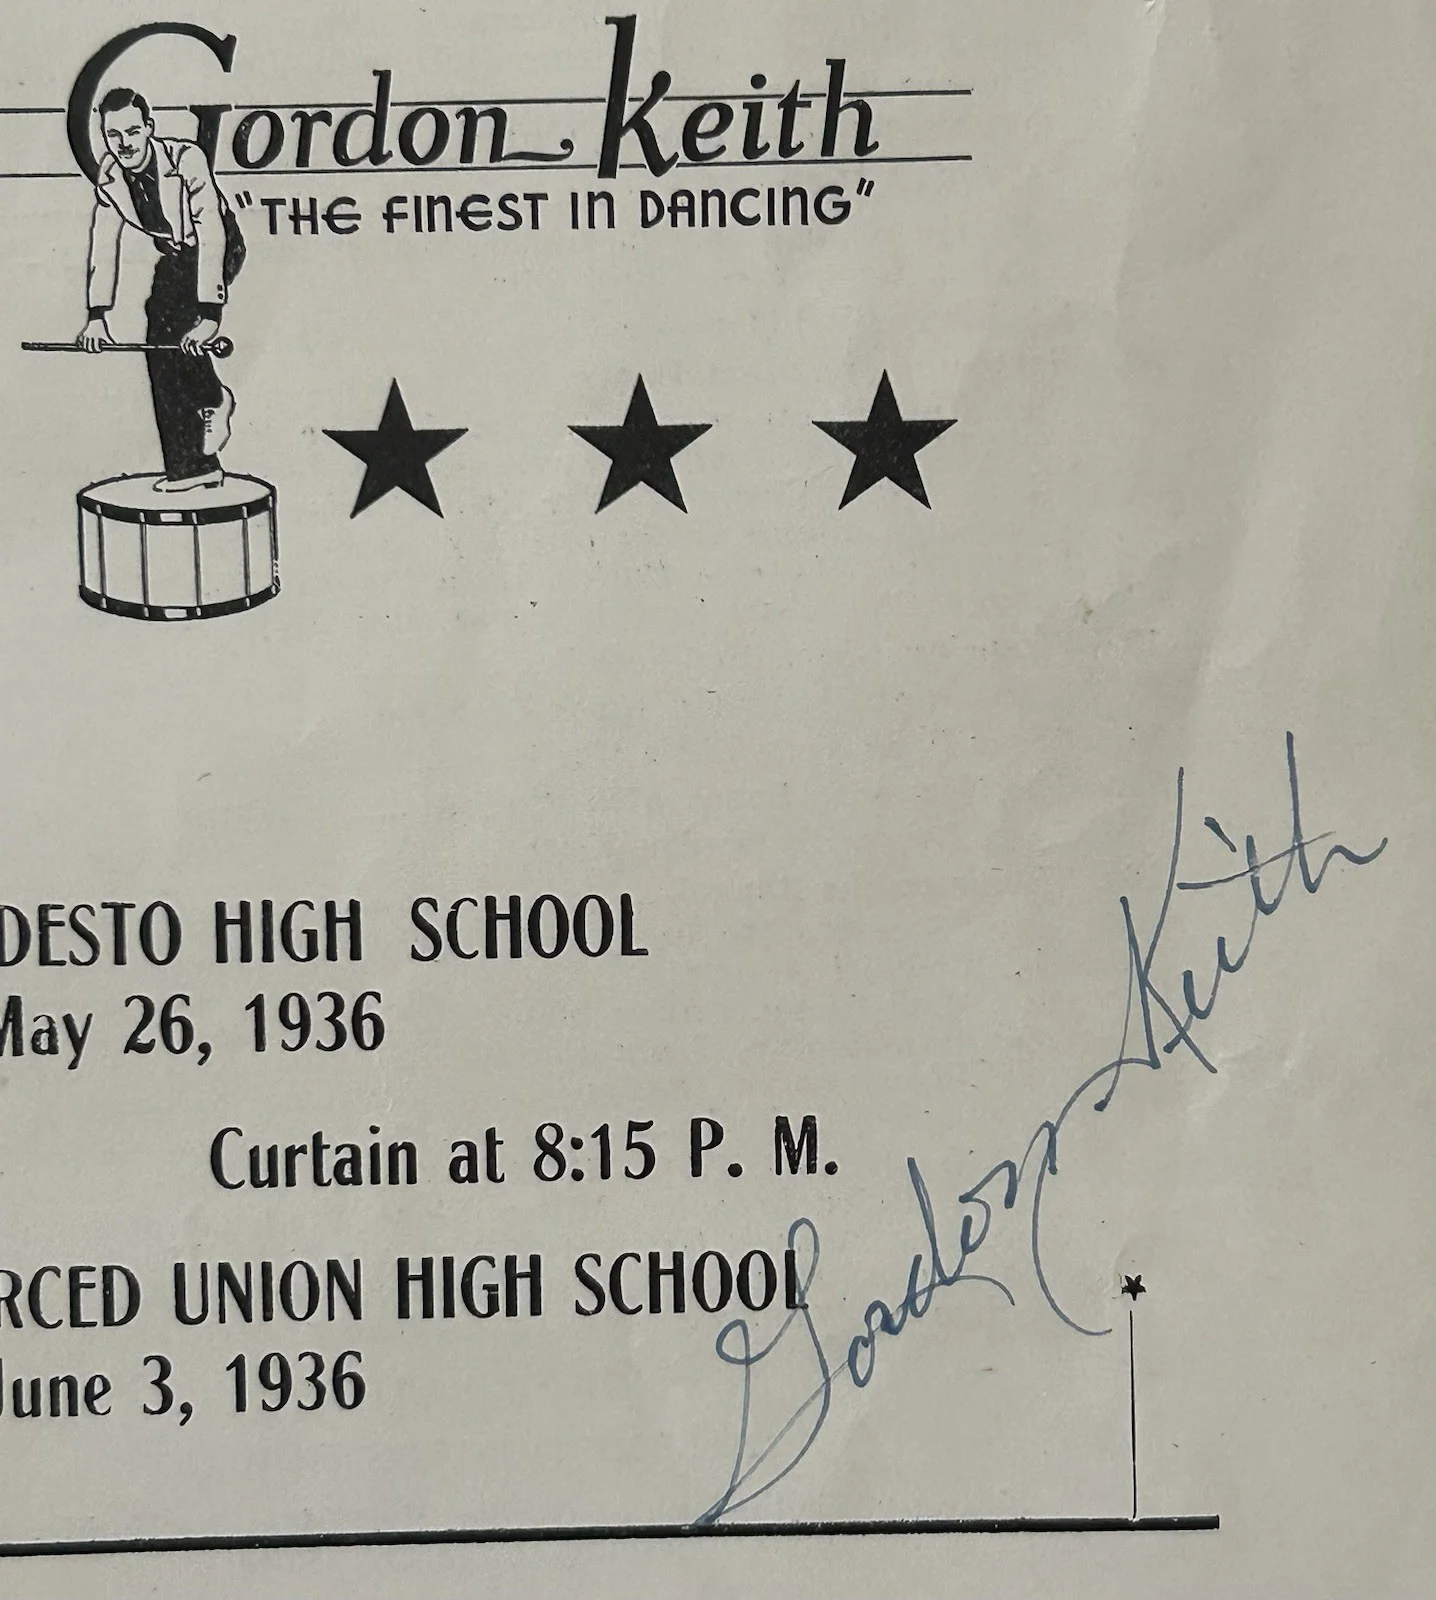 Gordon Keith
"THE FINEST IN DANCING"
DESTO HIGH SCHOOL
May 26, 1936
Curtain at 8:15 P. M.
RCED UNION HIGH SCHOOL
June 3, 1936
Gordon Keith